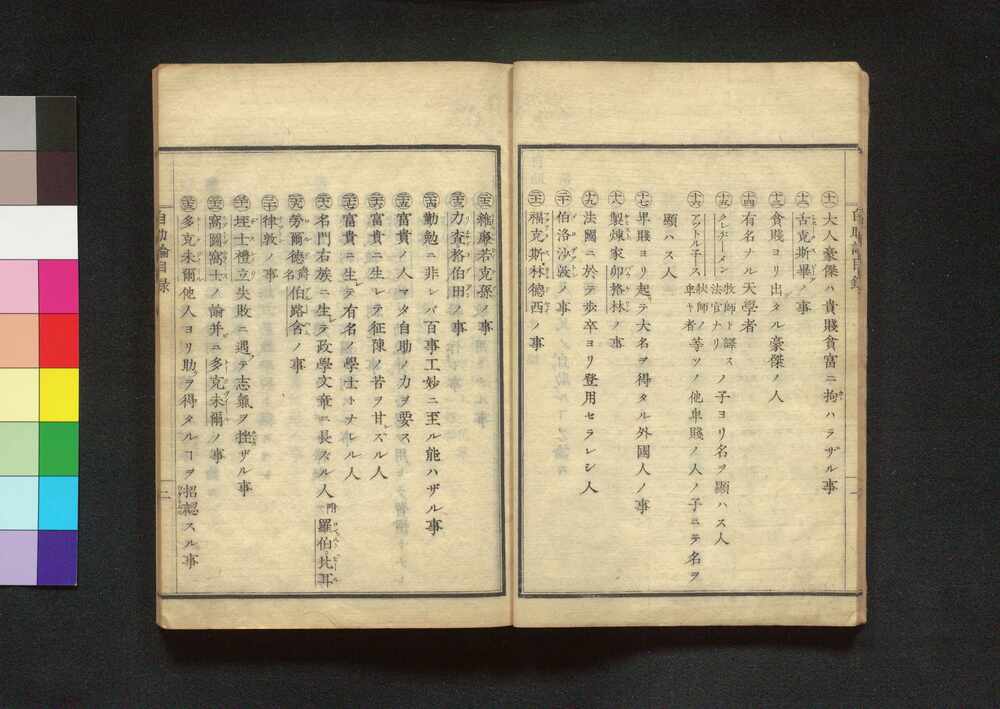 ㊉一 大人豪傑ハ貴賤貧富ニ拘ハラザル事
㊉二 古克斯畢ノ事
㊉三 貧賤ヨリ出タル豪傑ノ人
㊉四 有名ナル天學者
㊉五 クレルジーメン 牧師ト譯ス 法官ナリ ノ子ヨリ名ヲ顯ハス人
㊉六 アットル子ース 牧師ノ等 卑キ者 ソノ他卑賤ノ人ノ子ニテ名ヲ
顯ハス人
㊉七 卑賤ヨリ起テ大名ヲ得タル外國人ノ事
㊉八 製煉家卯格林ノ事
㊉九 法國ニ於テ歩卒ヨリ登用セラレシ人
二十 伯洛沙敦ノ事
二十一 福克斯林德西ノ事
自助論目錄
二十二 維廉若克孫ノ事
二十三 力查格伯田ノ事
二十四 勤勉ニ非レバ百事工妙ニ至ル能ハザル事
二十五 富貴ノ人マタ自助ノ力ヲ要ス
二十六 富貴ニ生レテ征陳ノ苦ヲ甘ズル人
二十七 富貴ニ生テ有名ノ學士トナレル人
二十八 名門右族ニ生テ政學文章ニ長ズル人 附 羅伯比耳
二十九 勞爾德 爵名 伯路舍ノ事
三十 律敦ノ事
三十一 垤士禮立失敗ニ遇テ志氣ヲ挫ザル事
三十二 窩圖窩士ノ論并ニ多克未爾ノ事
三十三 多克未爾他人ヨリ助ヲ得タルヿヲ招認スル事
自助論目錄
二